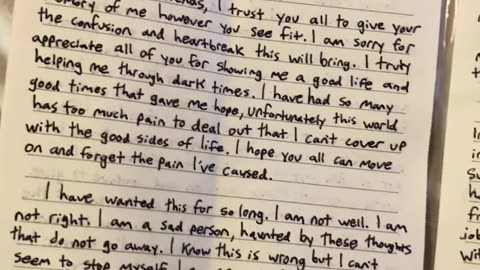 I trust you all to give your
memory of me however you see fit. I am sorry for
the confusion and heartbreak this will bring. I truly
appreciate all of you for showing me a good life and
helping me through dark times. I have had so many
good times that gave me hope, unfortunately this world
has too much pain to deal out that I can't cover up
with the good sides of life. I hope you all can move
on and forget the pain I've caused.
I have wanted this for so long. I am not well. I am
not right. I am a sad person, haunted by these thoughts
that do not go away. I know this is wrong but I can't
seem to stop myself.